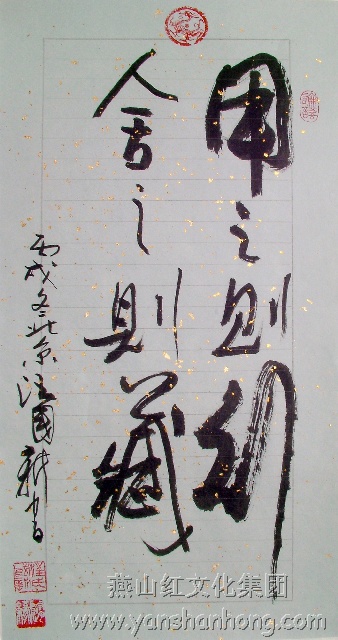 用之则行
舍之则藏
丙戌冬北京汪国新书
燕山红文化集团
www.yanshanhong.com